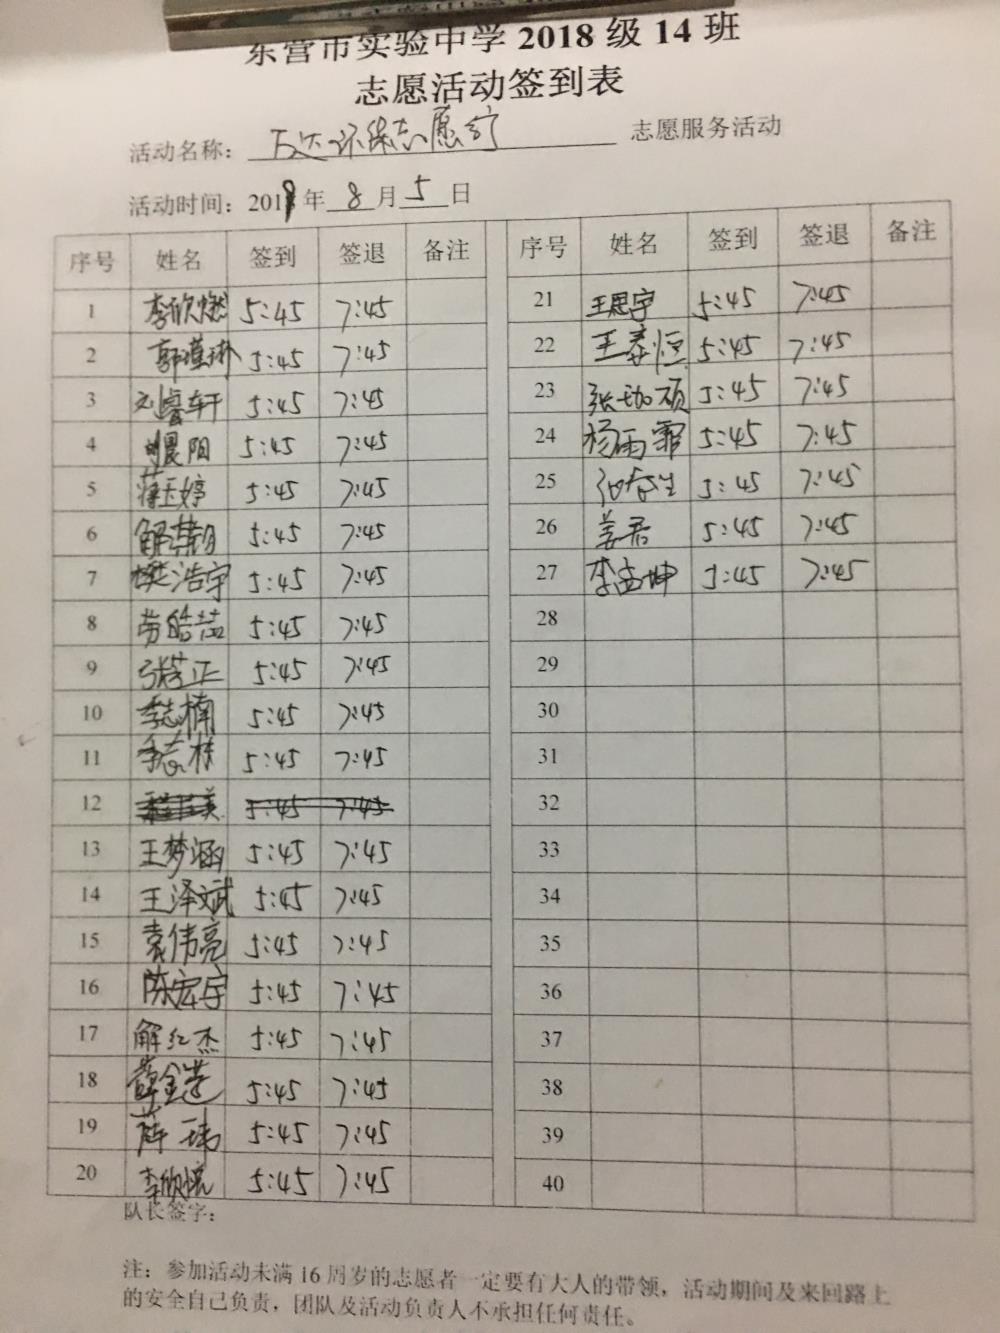 东营市实验中学2018级14班
志愿活动签到表
活动名称：万达环保志愿行 志愿服务活动
活动时间：2019年8月5日
序号 姓名 签到 签退 备注 序号 姓名 签到 签退 备注
1 李欣燃 5:45 7:45 21 王思宇 5:45 7:45
2 郭瑾琳 5:45 7:45 22 王泰恒 5:45 7:45
3 刘睿轩 5:45 7:45 23 张珈硕 5:45 7:45
4 晨阳 5:45 7:45 24 杨雨霏 5:45 7:45
5 蒋玉婷 5:45 7:45 25 5:45 7:45
6 解 5:45 7:45 26 姜君 5:45 7:45
7 樊浩宇 5:45 7:45 27 李孟坤 5:45 7:45
8 劳皓喆 5:45 7:45 28
9 张 正 5:45 7:45 29
10 李志楠 5:45 7:45 30
11 李志林 5:45 7:45 31
12 5:45 7:45 32
13 王梦涵 5:45 7:45 33
14 王泽斌 5:45 7:45 34
15 袁伟亮 5:45 7:45 35
16 陈宏宇 5:45 7:45 36
17 解红杰 5:45 7:45 37
18 薛金 5:45 7:45 38
19 薛玮 5:45 7:45 39
20 李欣悦 5:45 7:45 40
队长签字：
注：参加活动未满16周岁的志愿者一定要有大人的带领，活动期间及来回路上
的安全自己负责，团队及活动负责人不承担任何责任。